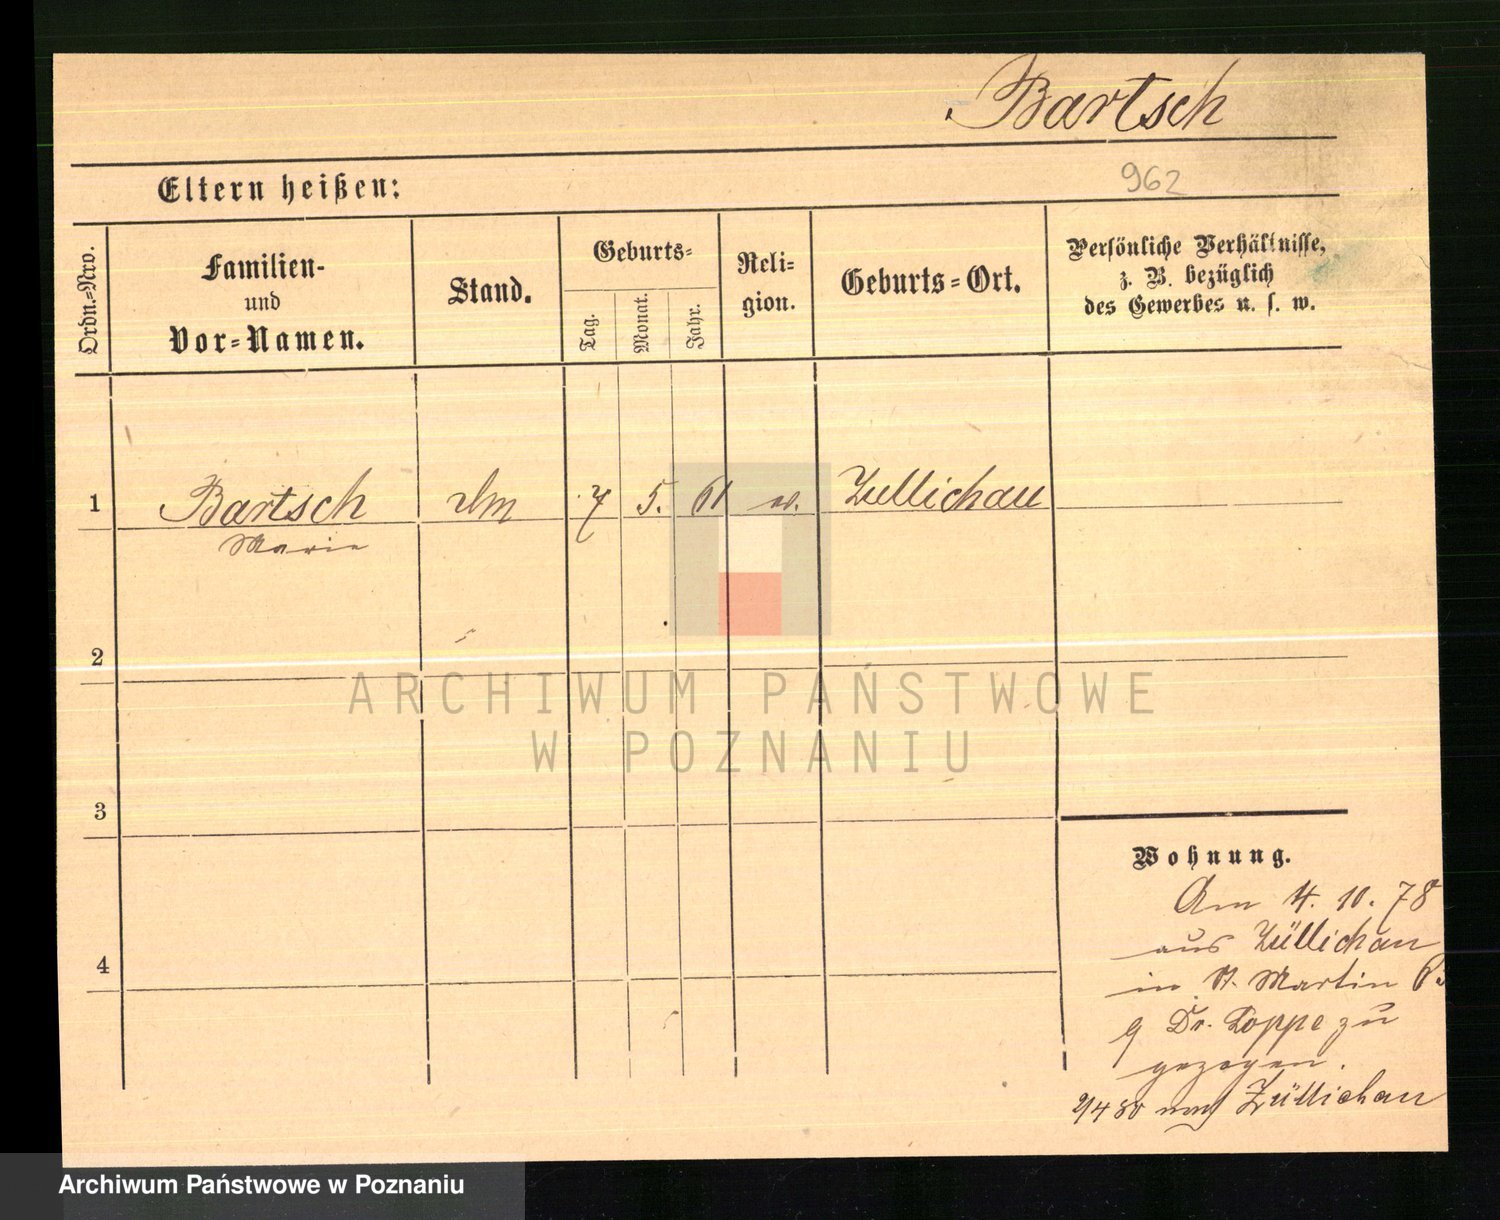 Bartsch
962
Eltern heißen:
Ordn.=Nro.
Familien-
und
Vor=Namen.
Stand.
Geburts=
Tag.
Monat.
Jahr.
Reli=
gion.
Geburts=Ort.
Persönliche Verhältnisse,
z. B. bezüglich
des Gewerbes u. s. w.
1 Bartsch 7 5. 61 Züllichau
Marie
2
3
4
Wohnung.
Am 4. 10. 78
aus Züllichau
in St. Martin
Dr. Poppe zu
gezogen.
9/4 80 nach Züllichau
ARCHIWUM PAŃSTWOWE
W POZNANIU
Archiwum Państwowe w Poznaniu